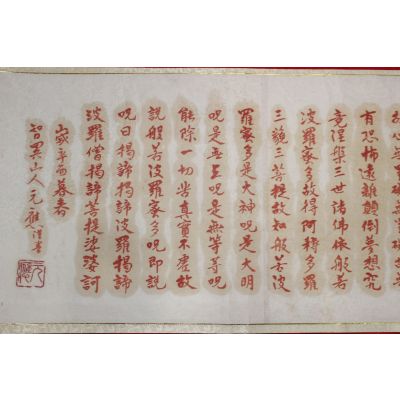 有恐怖遠離顛倒夢想究
竟涅槃三世諸佛依般若
波羅蜜多故得阿耨多羅
三藐三菩提故知般若波
羅蜜多是大神呪是大明
呪是無上呪是無等等呪
能除一切苦真實不虛故
說般若波羅蜜多呪即說
呪曰揭諦揭諦波羅揭諦
波羅僧揭諦菩提娑婆訶
歲辛酉暮春
智異山人元